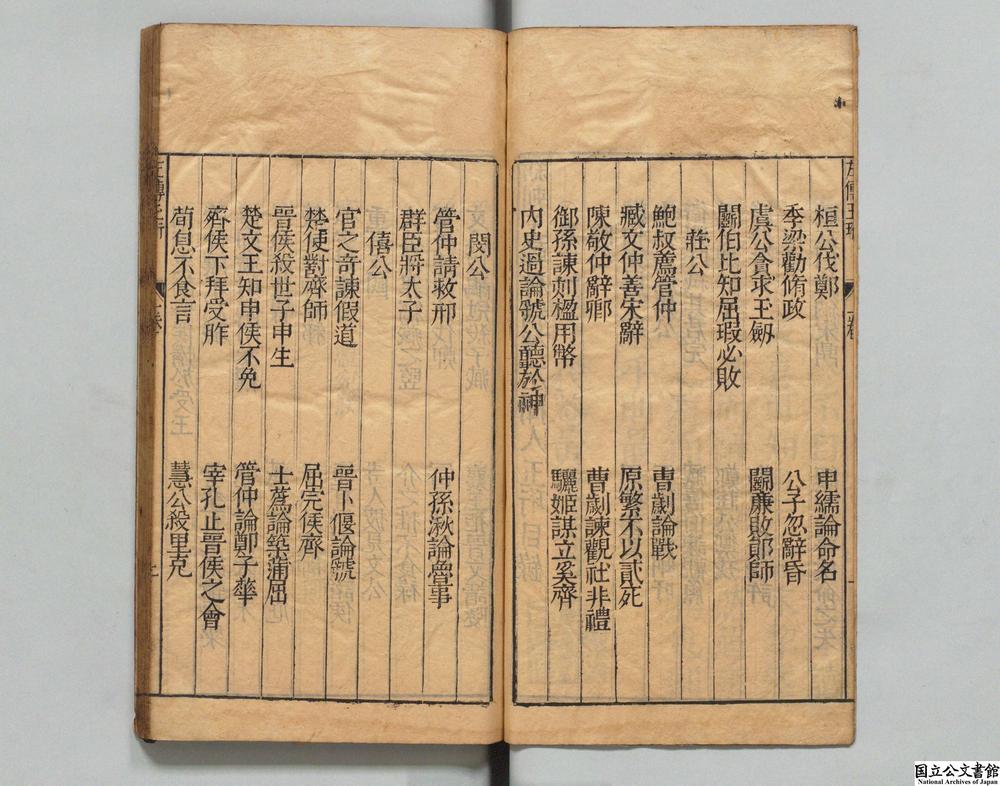 桓公伐鄭　申繻論命名
季梁勸脩政　公子忽辭昏
虞公貪求玉劔　鬬廉敗鄖師
鬬伯比知屈瑕必敗
莊公
鮑叔薦管仲　曹劌論戰
臧文仲善宋辭　原繁不以貳死
陳敬仲辭卿　曹劌諫觀社非禮
御孫諫刻楹用幣　驪姬謀立奚齊
內史過論虢公聽於神
閔公
管仲請救邢　仲孫湫論魯事
群臣將太子
僖公
宮之奇諫假道　晉卜偃論虢
楚使對齊師　屈完侯齊
晉侯殺世子申生　士蒍論築蒲屈
楚文王知申侯不免　管仲論鄭子華
齊侯下拜受胙　宰孔止晉侯之會
荀息不食言　惠公殺里克
国立公文書館
National Archives of Japan